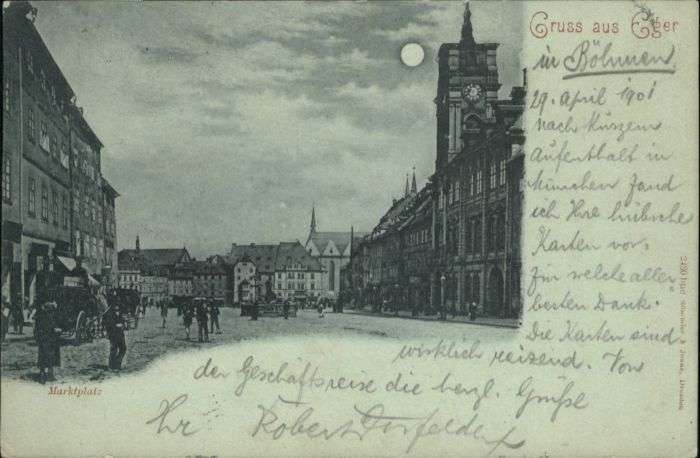 Gruss aus Eger
in Böhmen
29. April 1901
nach kurzem
Aufenthalt in
München fand
ich Ihre hübsche
Karten vor,
für welche aller-
besten Dank.
Die Karten sind
wirklich reizend. Von
der Geschäftsreise die herzl. Grüße
Ihr Robert Dorfelder
Marktplatz
Dresden